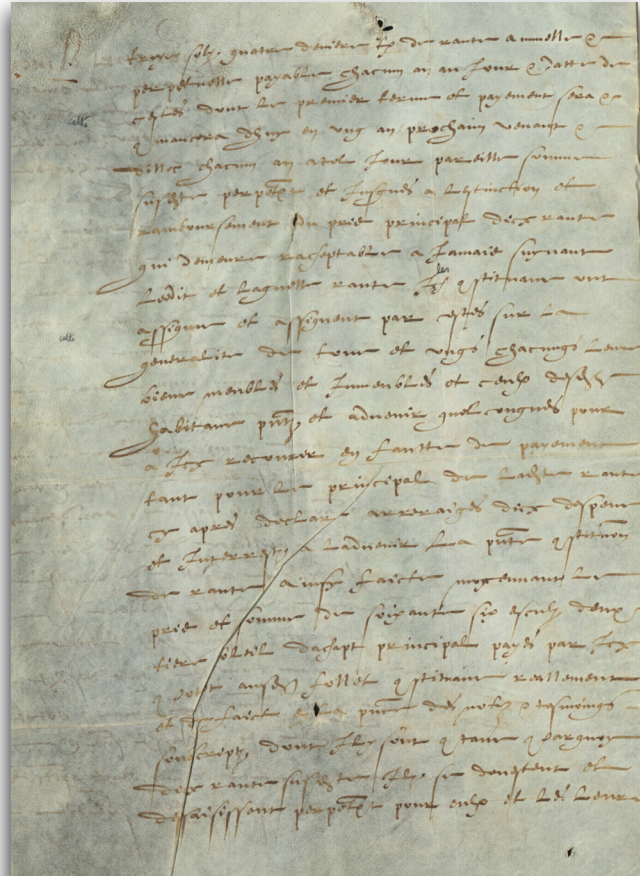 treze solz quatre deniers tz de rante annuelle &
perpetuelle payable chacun an au Jour & datte de
cestes dont le premier terme et payement sera &
9mancera dhuy en ung an prochain venant &
dillec chacun an a tel Jour pareille somme
suszte perpett et Jusques a lestinction et
ramboursement du prie principal dicx rante
qui demeure rachaptable a Jamais suyvant
Ledit et laquelle rante Jcx les 9stituans ont
assigne et assignent par cestes sur la
generalite de tous et ungs chacungs leurs
biens meubles et Jmmeubles et ceulx desdz
habitans pntz et advenir quelconques pour
a Jcx recourir en faulte de payement
tant pour le principal de ladte rante
cy apres declaire arreraiges dicx despens
et Jnterestz a ladvenir La pnte 9stituon
de rante ainsy faicte moyennant le
prie et somme de soixante six escuz deux
tiers dachapt principal payes par Jcx
ausdz 9stituans reallement
et de faict & la pnce des notz & tesmoings
soubscriptz dont Jlz sont 9tans
dicx rante suszte Jlz se devestent et
desaisissent perpett pour eulx et Les leurs